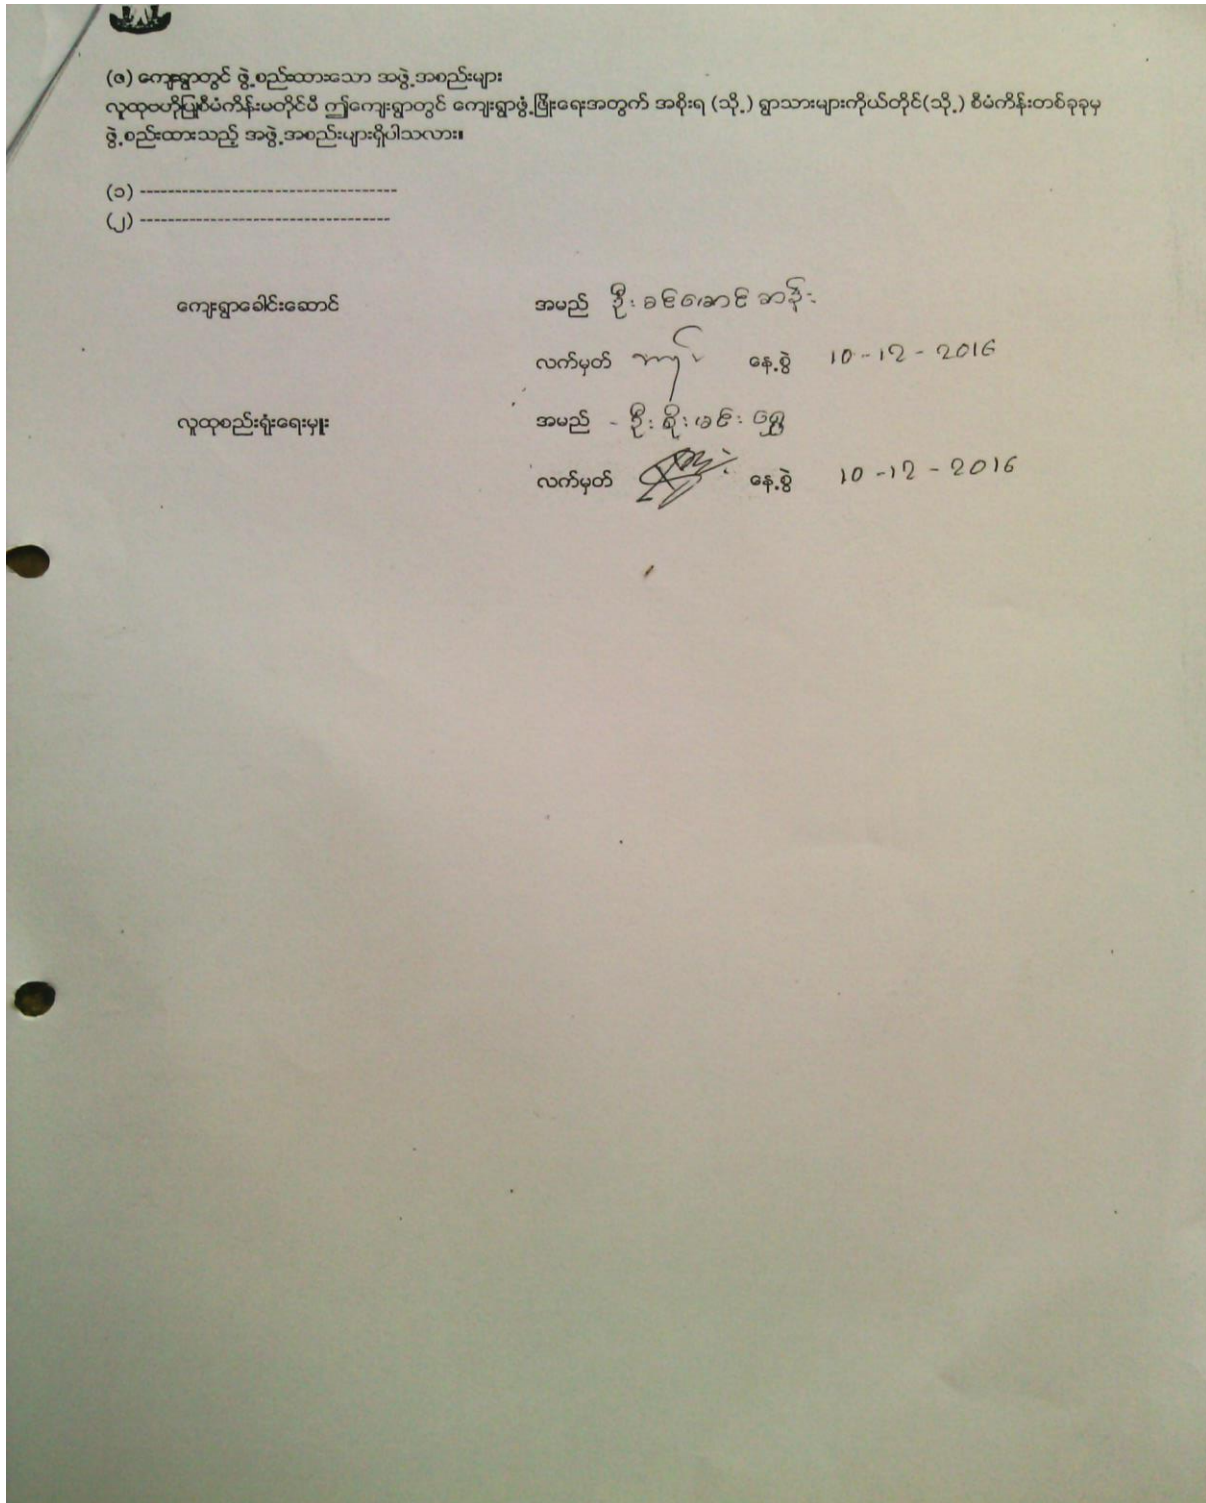 (ဇ) ကျေးရွာတွင် ဖွဲ့စည်းထားသော အဖွဲ့အစည်းများ
လူထုဗဟိုပြုစီမံကိန်းမတိုင်မီ ဤကျေးရွာတွင် ကျေးရွာဖွံ့ဖြိုးရေးအတွက် အစိုးရ (သို့) ရွာသားများကိုယ်တိုင်(သို့) စီမံကိန်းတစ်ခုခုမှ
ဖွဲ့စည်းထားသည့် အဖွဲ့အစည်းများရှိပါသလား။
(၁) -------------------------------------
(၂) ------------------------------------
ကျေးရွာခေါင်းဆောင် အမည် ဦး
လက်မှတ် နေ့စွဲ 10-12-2016
လူထုစည်းရုံးရေးမှူး အမည် - ဦး စိုး ရွှေ
လက်မှတ် နေ့စွဲ 10-12-2016